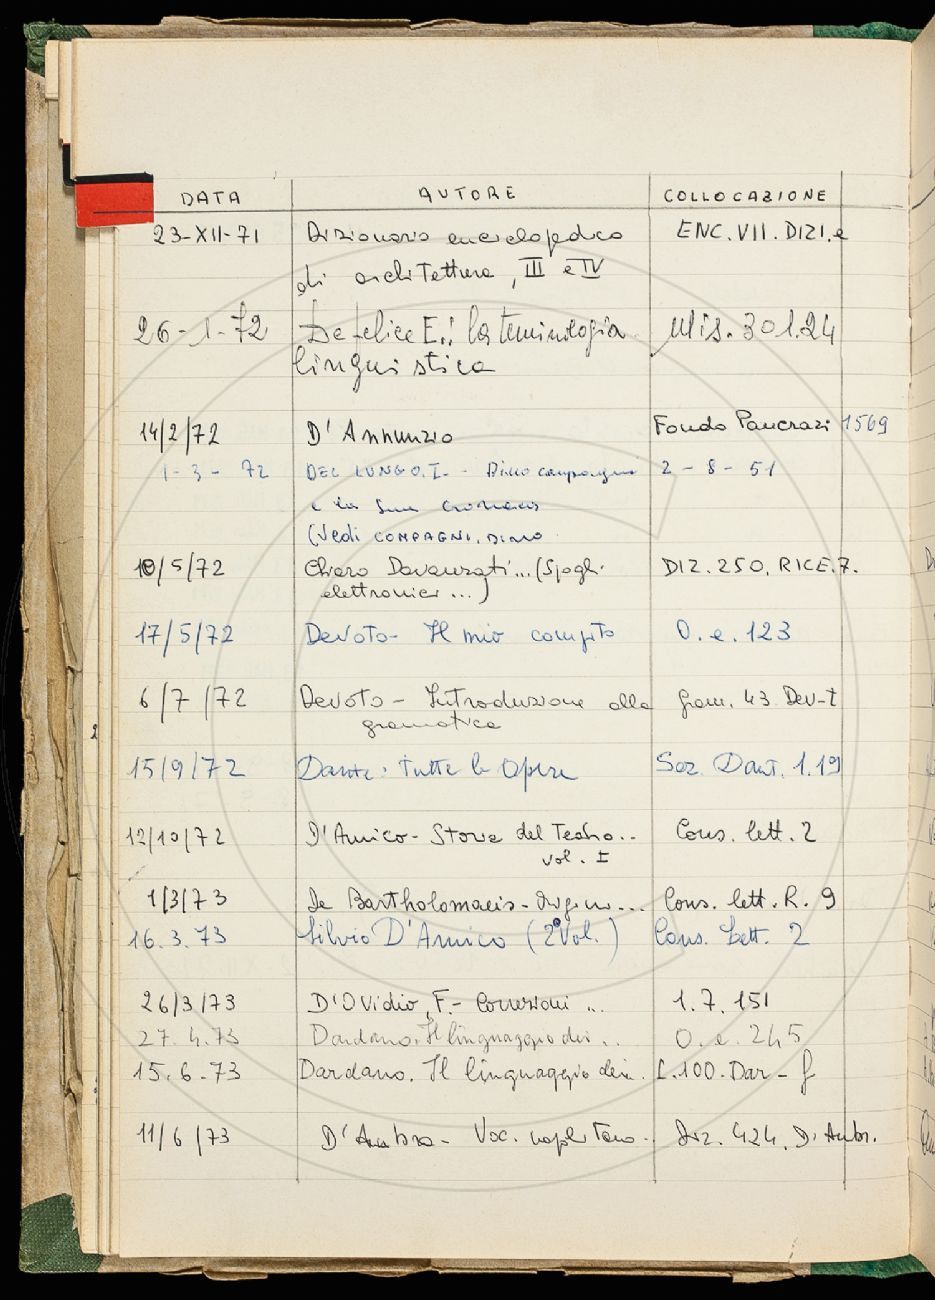 DATA AUTORE COLLOCAZIONE
23-XII-71 Dizionario enciclopedico ENC.VII.DIZI.e
di architettura, III e IV
26-1-72 De felice E.: la teminologia Mis. 301.24
linguistica
14/2/72 D'Annunzio Fondo Pancrazi 1569
1-3-72 DEL LUNGO, I. - Dino compagni 2-8-51
e la sua cronaca
(Vedi COMPAGNI, DINO
10/5/72 Chiaro Davanzati... (Spogli DIZ.250.RICE.7.
elettronici ...)
17/5/72 Devoto - Il mio compito O.e.123
6/7/72 Devoto - Introduzione alla Gram. 43 Dev-t
gramatica
15/9/72 Dante: tutte le opere Soz. Dant. 1.19
12/10/72 D'Amico - Storia del Teatro... Cons. lett. 2
vol. I
1/3/73 De Bartholomaeis - Origini... Cons. lett. R. 9
16.3.73 Silvio D'Amico (2° Vol.) Cons. Lett. 2
26/3/73 D'Ovidio, F. - Correzioni .. 1.7.151
27.4.73 Dardano. Il linguaggio dei .. O.e. 245
15.6.73 Dardano. Il linguaggio dei. L.100.Dar-f
11/6/73 D'Ambra - Voc. napletano. Diz. 424. D'Ambr.